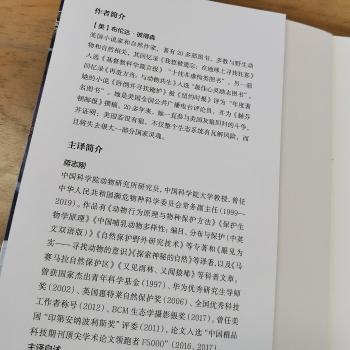 作者简介
【美】布伦达·彼得森
美国小说家和自然作家，著有20多部图书，多数与野生动
物和自然相关，其回忆录《我想被遗忘：在地球上寻找狂喜》
入选《基督教科学箴言报》“十佳非虚构类图书”，另一部
回忆录《再造方舟：与动物共生》入选
她的小说《 》被《纽约时报》评为“年度著
名图书”。她是美国全公共广播电台评论员，并为《赫芬
顿邮报》撰稿。20多年来，她一直参与美国灰狼回归的斗争，
并证明：美国若没有狼，不仅整个生态系统有瓦解风险，而
且将失去很大一部分国家灵魂。
主译简介
蒋志刚
中国科学院动物研究所研究员，中国科学院大学教授，曾任
中华人民共和国濒危物种科学委员会常务副主任（1999—
2019）。作品有《动物行为原理与物种保护方法》《保护生
物学原理》《中国哺乳动物多样性：编目、分布与保护（中英
文双语版）》《自然保护野外研究技术》等专著和《眼见为
实——寻找动物的意识》《探索神秘的自然》等译著，以及《马
赛马拉自然保护区》《又见雨林，又闻猿啼》等科普文章，
曾获国家杰出青年科学基金（1997）、华为优秀研究生导师
奖（2002）、英国惠特莱自然保护奖（2006）、全国优秀科技
工作者称号（2012）、BCM生态学摄影银奖（2017）。曾任美
国“印第安纳波利斯奖”评委（2011），论文入选“中国精品
科技期刊顶尖学术论文领跑者F5000”（2016，2017）
主译自述